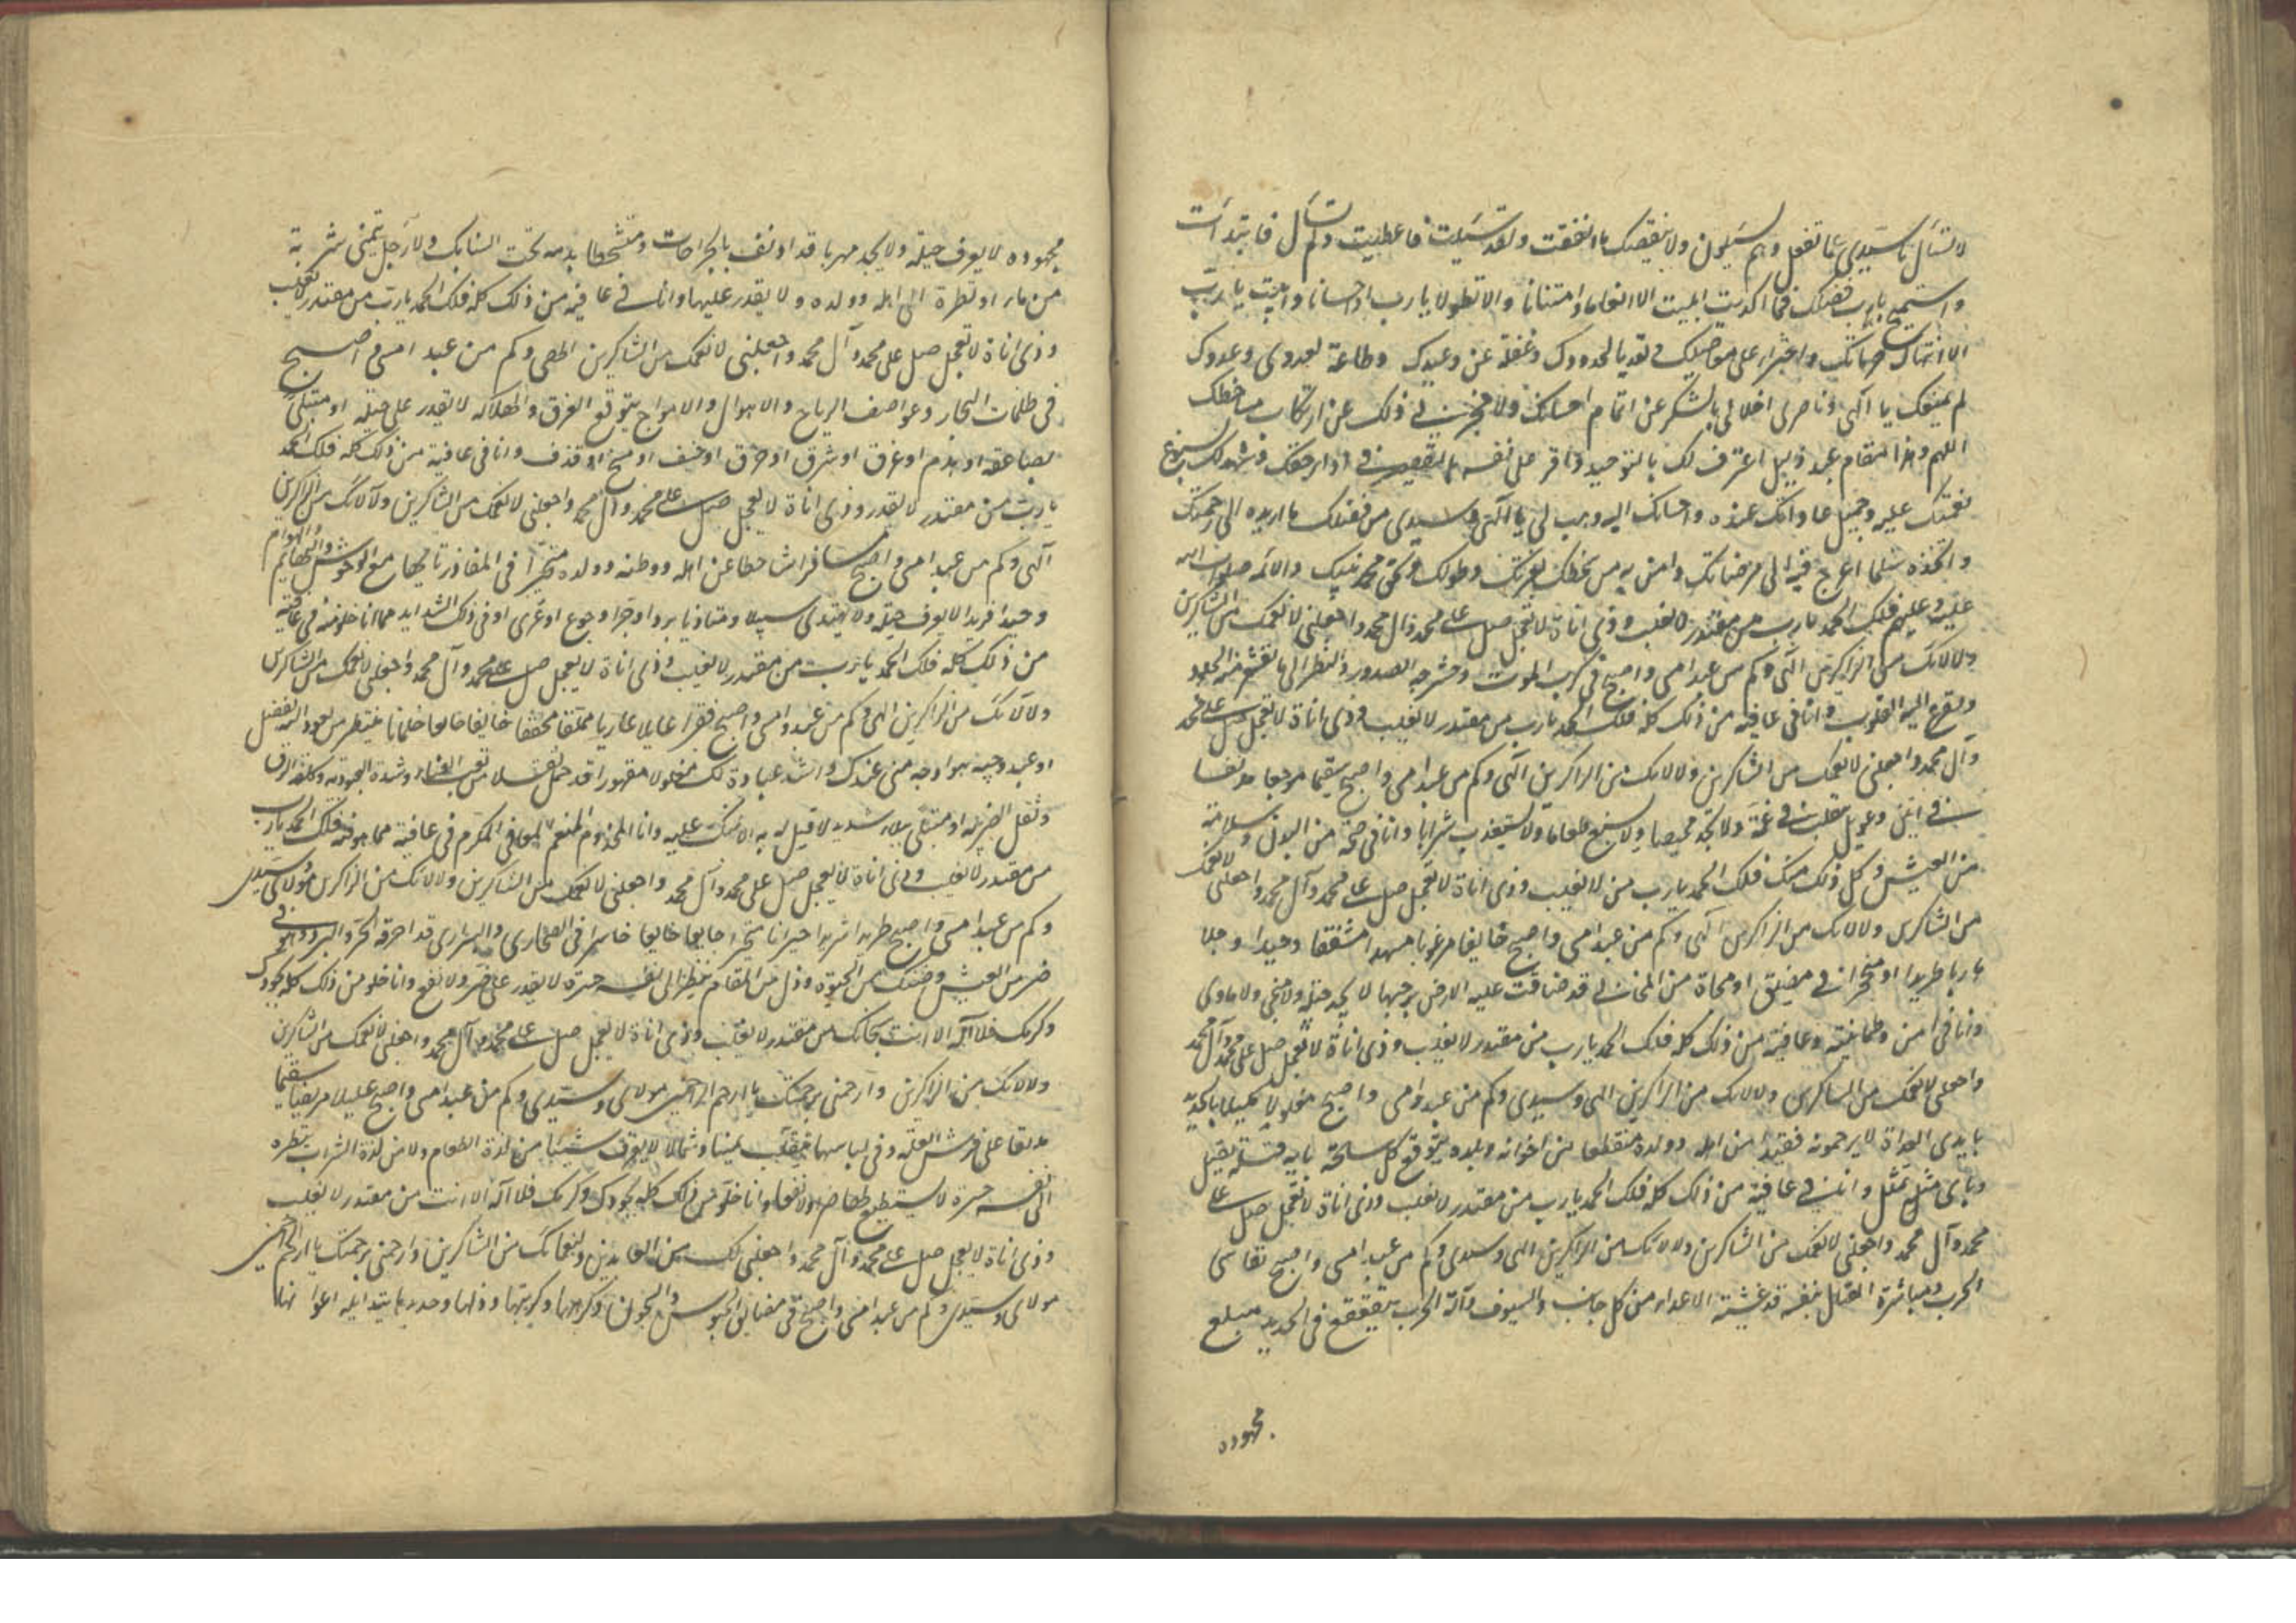 لا تسأل يا سيدي عما تفعل وهم يسئلون ولا ينقصك ما انفقت ولقد سئلت فاعطيت ولم تسأل فابتدأت
واستميح يا رب فضلك فما اكديت ابيت الا انعاما وامتنانا والا تطولا يا رب واحسانا وابيت يا رب
الا انتهاك حرماتك واجتراء على معاصيك وتعديا لحدودك وغفلة عن وعيدك وطاعة لعدوي وعدوك
لم يمنعك يا الهي وناصري اخلالي بالشكر عن اتمام احسانك ولا حجزني ذلك عن ارتكاب مساخطك
اللهم وهذا مقام عبد ذليل اعترف لك بالتوحيد واقر على نفسه بالتقصير في اداء حقك وشهد لك بسبوغ
نعمتك عليه وجميل عاداتك عنده واحسانك اليه وهب لي يا الهي وسيدي من فضلك ما اريده الى رحمتك
واتخذه سلما اعرج فيه الى مرضاتك وامن به من سخطك بعزتك وطولك وبحق محمد نبيك والائمه صلوات الله
عليه وعليهم فلك الحمد يا رب من مقتدر لا يغلب وذي اناة لا تعجل صل على محمد وآل محمد واجعلني لانعمك من الشاكرين
ولالائك من الذاكرين الهي وكم من عبد امسى واصبح في كرب الموت وحشرجة الصدور والنظر الى ما تقشعر منه الجلود
وتفزع اليه القلوب وانا في عافية من ذلك كله فلك الحمد يا رب من مقتدر لا يغلب وذي اناة لا تعجل صل على محمد
وآل محمد واجعلني لانعمك من الشاكرين ولالائك من الذاكرين الهي وكم من عبد امسى واصبح سقيما موجعا مدنفا
في انين وعويل يتقلب في غمه ولا يجد محيصا ولا يسيغ طعاما ولا يستعذب شرابا وانا في صحة من البدن وسلامة
من العيش وكل ذلك منك فلك الحمد يا رب من لا يغلب وذي اناة لا تعجل صل على محمد وآل محمد واجعلني لانعمك
من الشاكرين ولالائك من الذاكرين الهي وكم من عبد امسى واصبح خائفا مرعوبا مسهدا مشفقا وحيدا وجلا
هاربا طريدا او منحجزا في مضيق او مخباة من المخابي قد ضاقت عليه الارض برحبها لا يجد حيلة ولا منجى ولا ماوى
وانا في امن وطمانينة وعافية من ذلك كله فلك الحمد يا رب من مقتدر لا يغلب وذي اناة لا تعجل صل على محمد وآل محمد
واجعلني لانعمك من الشاكرين ولالائك من الذاكرين الهي وسيدي وكم من عبد امسى واصبح مغلولا مكبلا بالحديد
بايدي العداة لا يرحمونه فقيدا من اهله وولده منقطعا عن اخوانه وبلده يتوقع كل ساعة بايه قتلة يقتل
وباي مثل يمثل وانا في عافية من ذلك كله فلك الحمد يا رب من مقتدر لا يغلب وذي اناة لا تعجل صل على
محمد وآل محمد واجعلني لانعمك من الشاكرين ولالائك من الذاكرين الهي وسيدي وكم من عبد امسى واصبح يقاسي
الحرب ومباشرة القتال بنفسه قد غشيته الاعداء من كل جانب والسيوف وآلة الحرب يتقعقع في الحديد مبلغ
مجهوده
مجهوده لا يعرف حيلة ولا يجد مهربا قد ادنف بالجراحات ومتشحطا بدمه تحت السنابك والارجل يتمنى شربة
من ماء او نظرة الى اهله وولده ولا يقدر عليها وانا في عافية من ذلك كله فلك الحمد يا رب من مقتدر لا يغلب
وذي اناة لا تعجل صل على محمد وآل محمد واجعلني لانعمك من الشاكرين الهي وكم من عبد امسى واصبح
في ظلمات البحار وعواصف الرياح والاهوال والامواج يتوقع الغرق والهلاك لا يقدر على حيلة او مبتلى
بصاعقة او هدم او غرق او شرق او حرق او خسف او مسخ او قذف وانا في عافية من ذلك كله فلك الحمد
يا رب من مقتدر لا يغلب وذي اناة لا يعجل صل على محمد وآل محمد واجعلني لانعمك من الشاكرين ولآلائك من الذاكرين
الهي وكم من عبد امسى واصبح مسافرا شاحطا عن اهله ووطنه وولده متحيرا في المفاوز تايها مع الوحوش والبهايم والهوام
وحيدا فريدا لا يعرف حيلة ولا يهتدي سبيلا ومتاذيا ببرد او حر او جوع او عرى او في ذلك الشدايد مما انا خلو منه في عافية
من ذلك كله فلك الحمد يا رب من مقتدر لا يغلب وذي اناة لا يعجل صل على محمد وآل محمد واجعلني لانعمك من الشاكرين
ولآلائك من الذاكرين الهي وكم من عبد امسى واصبح فقيرا عايلا عاريا مملقا مخفقا خايفا ينتظر من يعود اليه بفضل
او عبد وجيه هو اوجه مني عندك واشد عبادة لك مغلولا مقهورا قد حمل ثقلا من تعب العناء وشدة العبودية وكلفة الرق
وثقل الضريبة او مبتلى ببلاء شديد لا قبل له به الا بمنك عليه وانا المخدوم المنعم المعافى المكرم في عافية مما هو فيه فلك الحمد يا رب
من مقتدر لا يغلب وذي اناة لا يعجل صل على محمد وآل محمد واجعلني لانعمك من الشاكرين ولالائك من الذاكرين مولاي وسيدي
وكم من عبد امسى واصبح طريدا شريدا حيرانا متحيرا جايعا خايفا خاسرا في الصحاري والبراري قد احرقه الحر والبرد وهو في
ضر من العيش وضنك من الحيوة وذل من المقام ينظر الى نفسه حسرة لا يقدر على ضر ولا نفع وانا خلو من ذلك كله بجودك
وكرمك فلا اله الا انت سبحانك من مقتدر لا يغلب وذي اناة لا يعجل صل على محمد وآل محمد واجعلني لانعمك من الشاكرين
ولالائك من الذاكرين وارحمني برحمتك يا ارحم الراحمين مولاي وسيدي وكم من عبد امسى واصبح عليلا مريضا سقيما
مدنفا على فرش العلة وفي لباسها يتقلب يمينا وشمالا لا يعرف شيئا من لذة الطعام ولا من لذة الشراب ينظر
الى نفسه حسرة لا يستطيع لها ضرا ولا نفعا وانا خلو من ذلك كله بجودك وكرمك فلا اله الا انت من مقتدر لا يغلب
وذي اناة لا يعجل صل على محمد وآل محمد واجعلني لك من العابدين ولنعمائك من الشاكرين وارحمني برحمتك يا ارحم الراحمين
مولاي وسيدي وكم من عبد امسى واصبح في مضايق الحبوس والسجون وكربها وذلها وحديدها يتداوله اعوانها